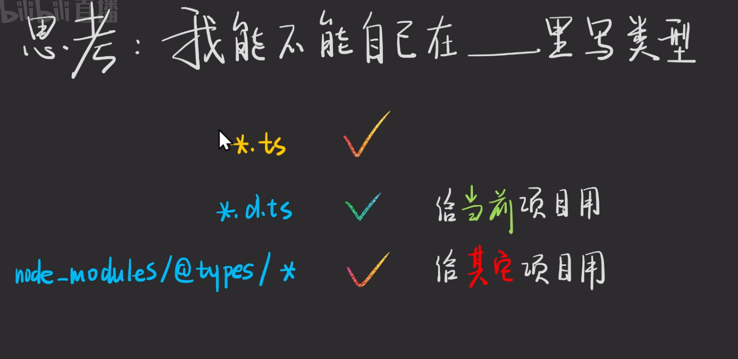 bilibili 直播
思考：我能不能自己在____里写类型
*.ts
*.d.ts 给当前项目用
node_modules/@types/* 给其它项目用